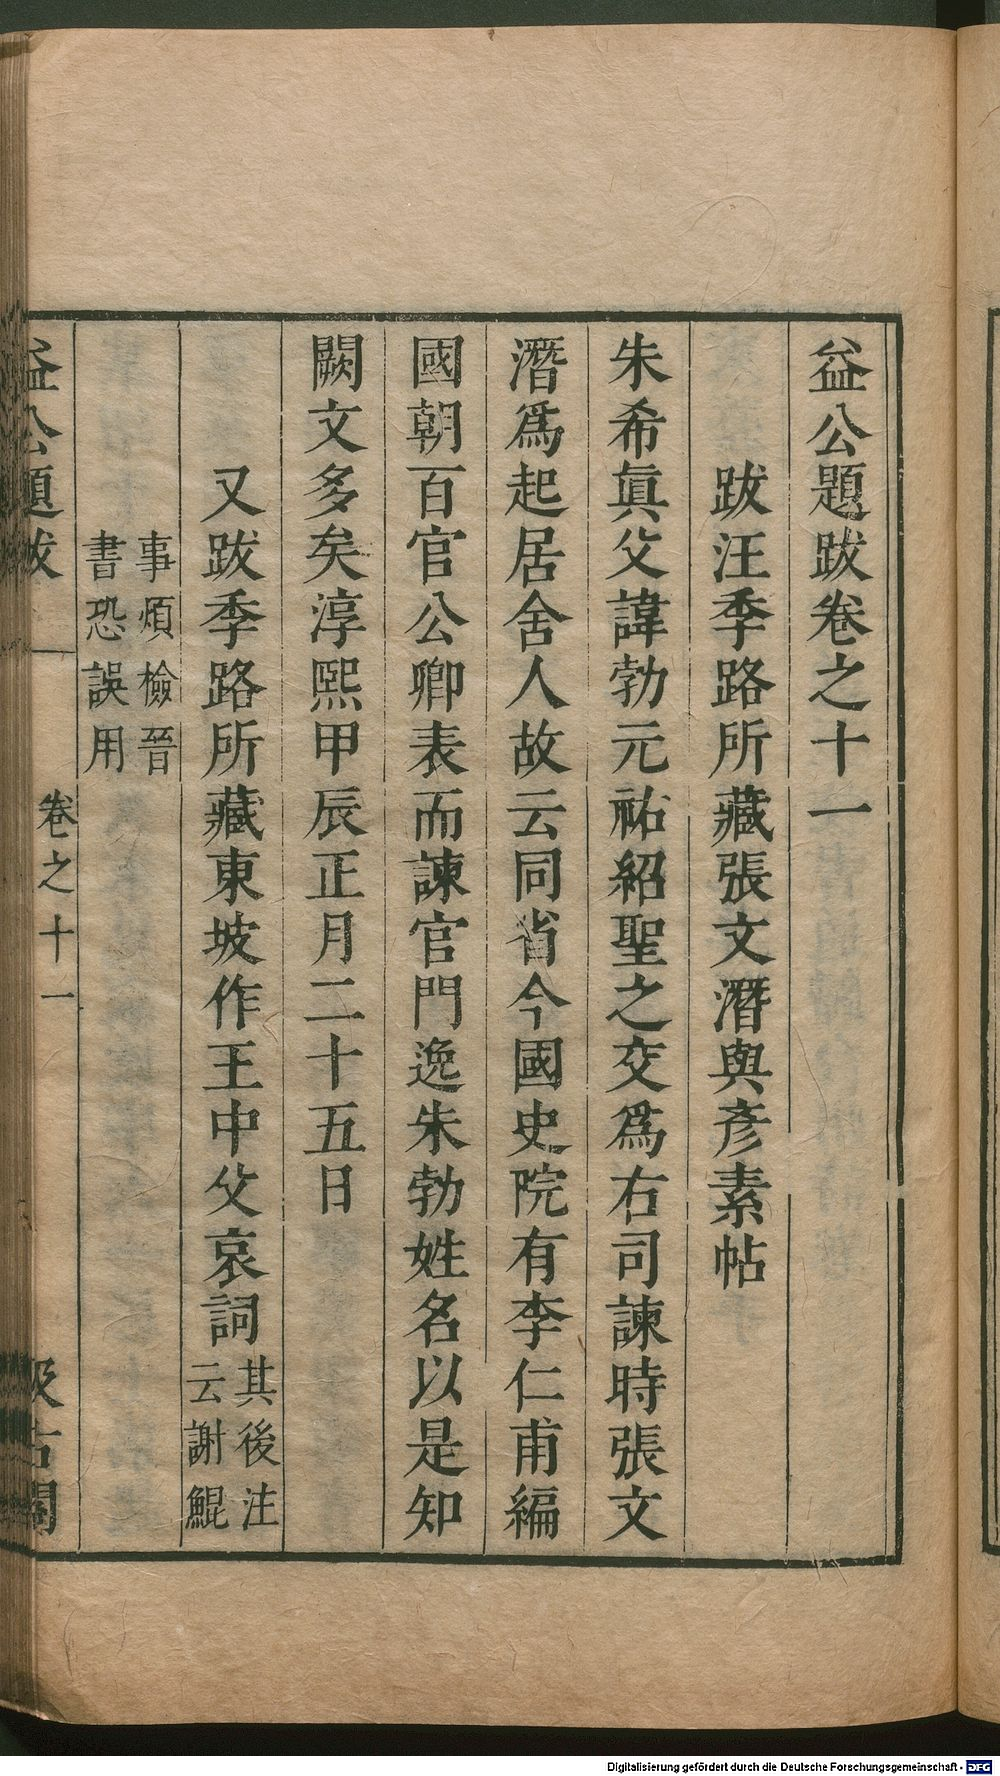 益公題跋卷之十一
跋汪季路所藏張文潛與彥素帖
朱希眞父諱勃元祐紹聖之交爲右司諫時張文
潛爲起居舍人故云同省今國史院有李仁甫編
國朝百官公卿表而諫官門逸朱勃姓名以是知
闕文多矣淳熙甲辰正月二十五日
又跋季路所藏東坡作王中父哀詞
其後注
云謝鯤
事煩檢晉
書恐誤用
益公題跋
卷之十一
汲古閣
Digitalisierung gefördert durch die Deutsche Forschungsgemeinschaft - DFG